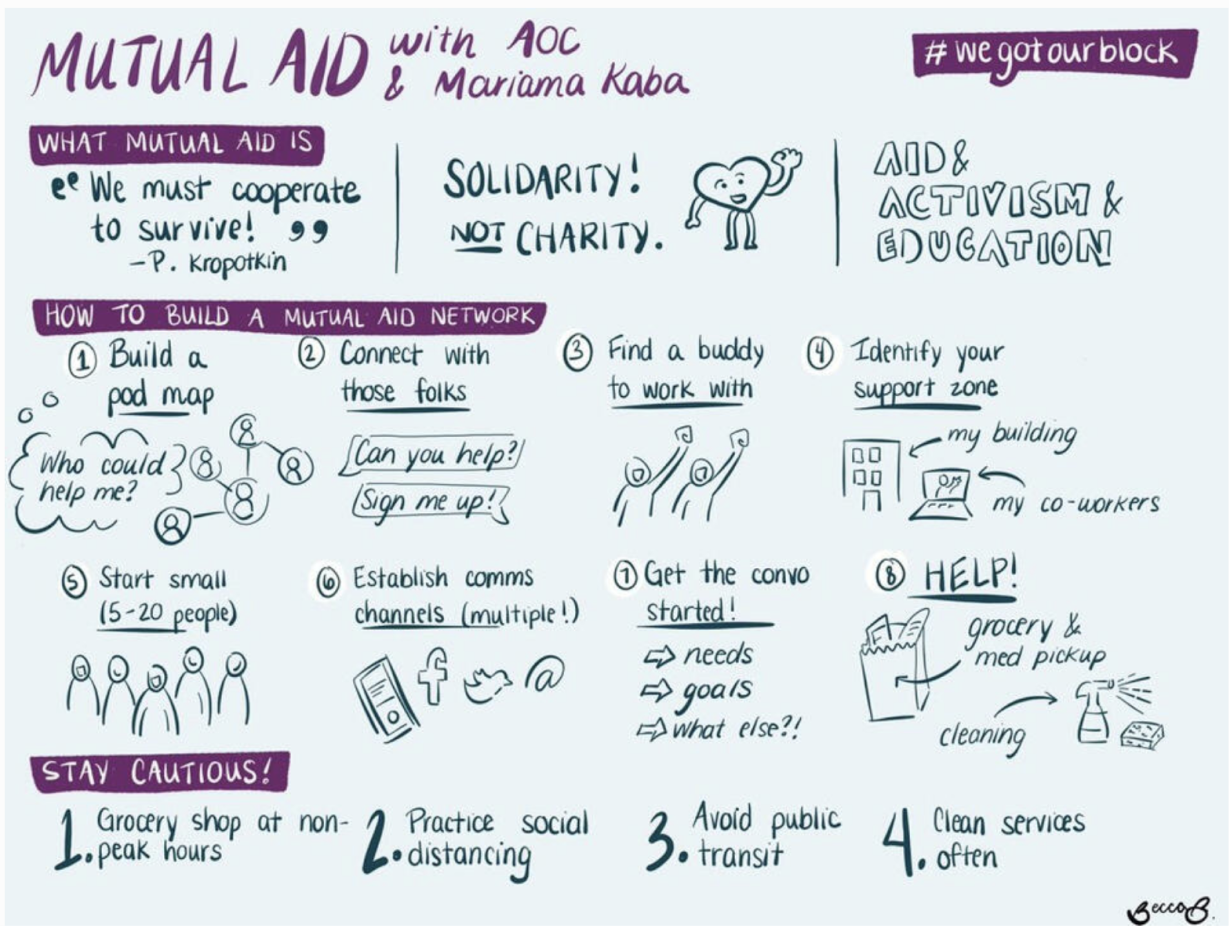 MUTUAL AID with AOC
& Mariama Kaba
#wegotourblock
WHAT MUTUAL AID IS
"We must cooperate
to survive!"
-P. Kropotkin
SOLIDARITY!
NOT CHARITY.
AID &
ACTIVISM &
EDUCATION
HOW TO BUILD A MUTUAL AID NETWORK
1 Build a
pod map
Who could
help me?
2 Connect with
those folks
Can you help?
Sign me up!
3 Find a buddy
to work with
4 Identify your
support zone
my building
my co-workers
5 Start small
(5-20 people)
6 Establish comms
channels (multiple!)
f
@
7 Get the convo
started!
⇨ needs
⇨ goals
⇨ what else?!
8 HELP!
grocery &
med pickup
cleaning
STAY CAUTIOUS!
1. Grocery shop at non-
peak hours
2. Practice social
distancing
3. Avoid public
transit
4. Clean services
often
BeccaB.